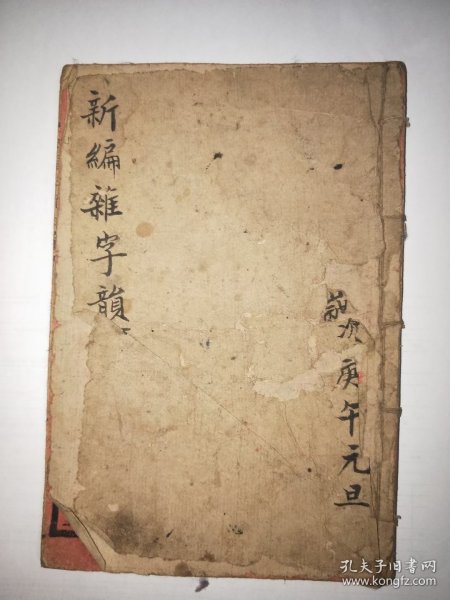 新編雜字韻
歲次庚午元旦
孔夫子旧书网
www.kongfz.com